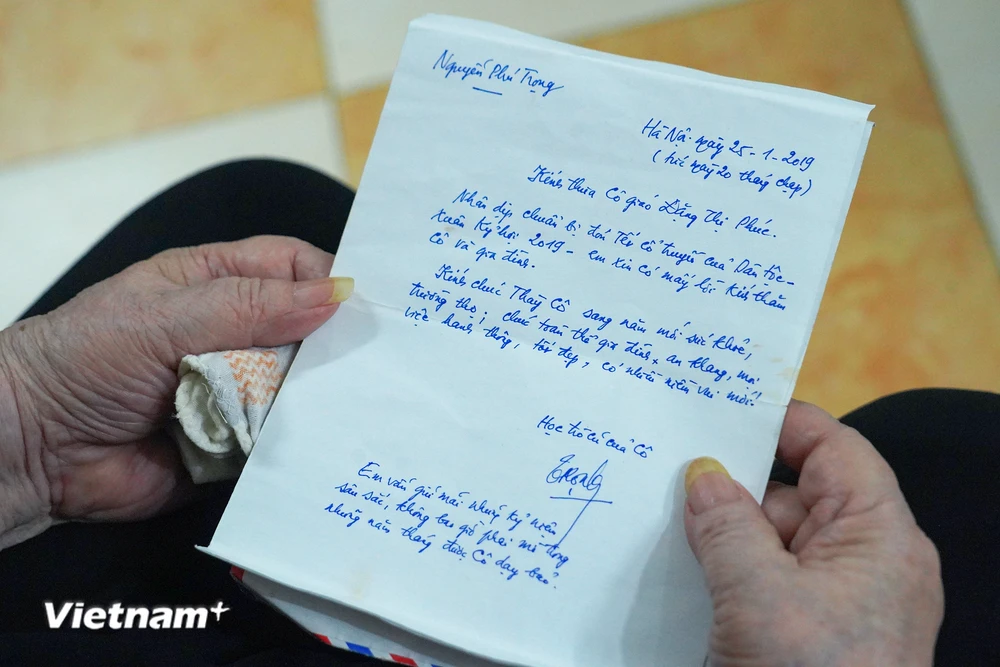 Nguyễn Phú Trọng
Hà Nội ngày 25-1-2019
(tức ngày 20 tháng chạp)
Kính thưa Cô giáo Đặng Thị Phúc.
Nhân dịp chuẩn bị đón Tết cổ truyền của Dân tộc -
Xuân Kỷ hợi 2019 - em xin có mấy lời kính thăm
Cô và gia đình.
Kính chúc Thầy Cô sang năm mới sức khoẻ,
trường thọ; chúc toàn thể gia đình an khang, mọi
việc hanh thông, tốt đẹp, có nhiều niềm vui mới!
Học trò cũ của Cô
TRỌNG
Em vẫn giữ mãi những kỷ niệm
sâu sắc, không bao giờ phai mờ trong
những năm tháng được Cô dạy bảo.
Vietnam+